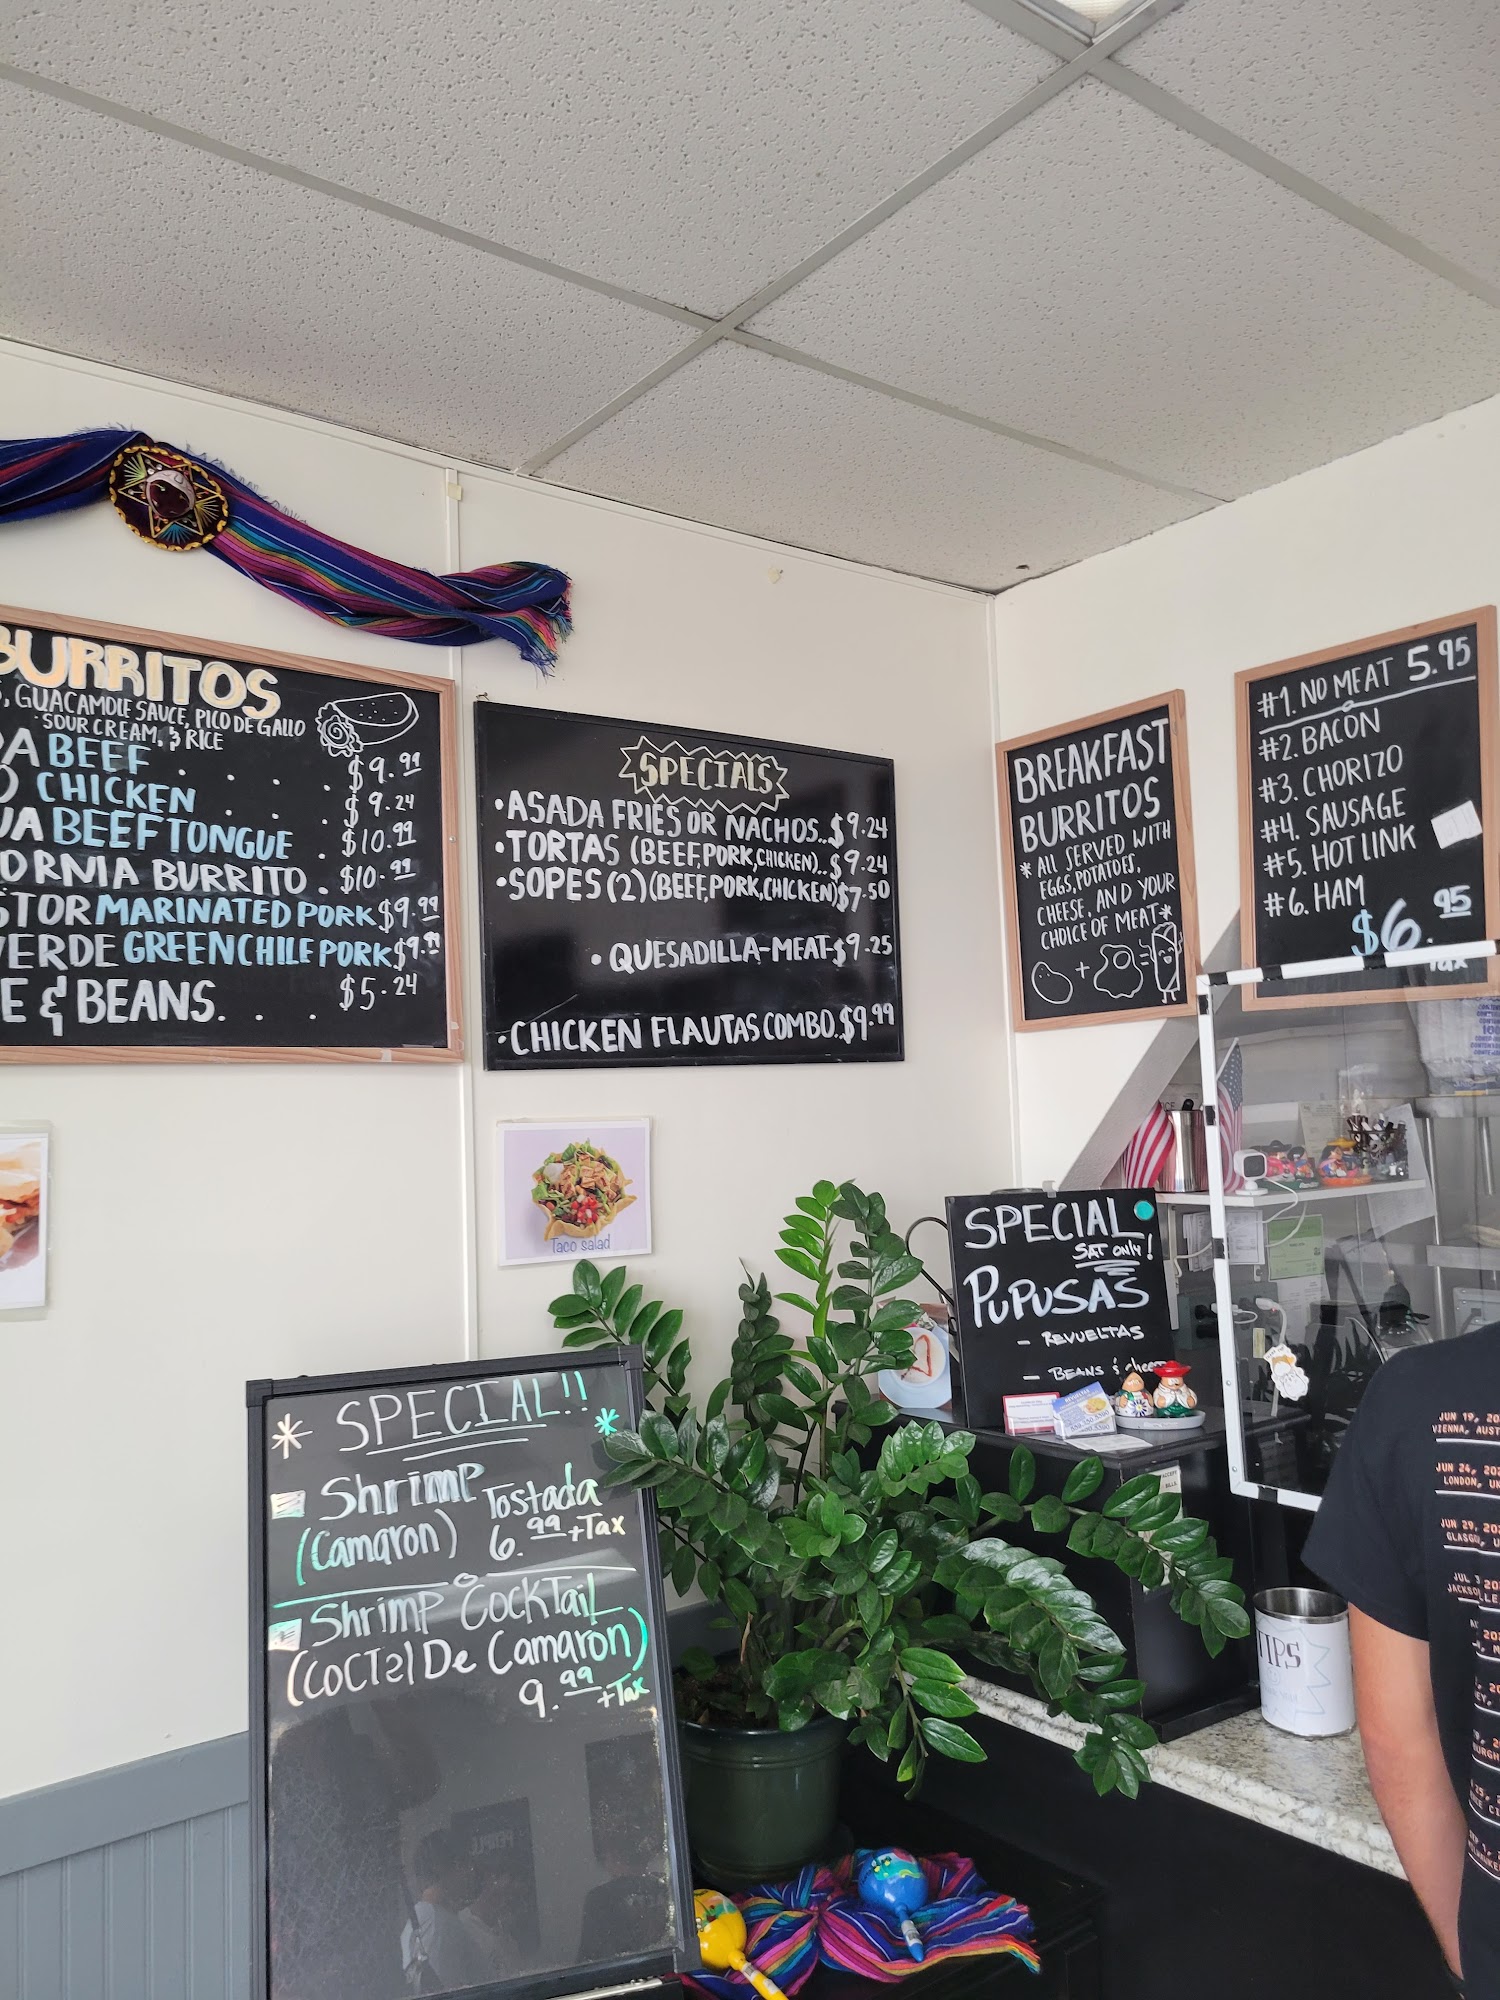 BURRITOS
, GUACAMOLE SAUCE, PICO DE GALLO
SOUR CREAM, & RICE
BEEF . . . . $9.99
CHICKEN . . . . $9.24
BEEF TONGUE . $10.99
BURRITO . $10.99
MARINATED PORK $9.99
VERDE GREEN CHILE PORK $9.99
& BEANS. . . . $5.24
SPECIALS
•ASADA FRIES OR NACHOS..$9.24
•TORTAS (BEEF,PORK,CHICKEN)..$9.24
•SOPES (2)(BEEF,PORK,CHICKEN)$7.50
•QUESADILLA-MEAT-$9.25
•CHICKEN FLAUTAS COMBO..$9.99
BREAKFAST
BURRITOS
*ALL SERVED WITH
EGGS, POTATOES,
CHEESE, AND YOUR
CHOICE OF MEAT*
#1. NO MEAT 5.95
#2. BACON
#3. CHORIZO
#4. SAUSAGE
#5. HOT LINK
#6. HAM
$6.95
Tax
Taco salad
SPECIAL
SAT ONLY!
PUPUSAS
- REVUELTAS
- BEANS & cheese
SPECIAL!!
Shrimp Tostada
(Camaron) 6.99 +Tax
Shrimp Cocktail
(Coctel De Camaron)
9.99 +Tax
TIPS
JUN 19,
VIENNA,
JUN 24,
LONDON,
JUN 29,
JUL